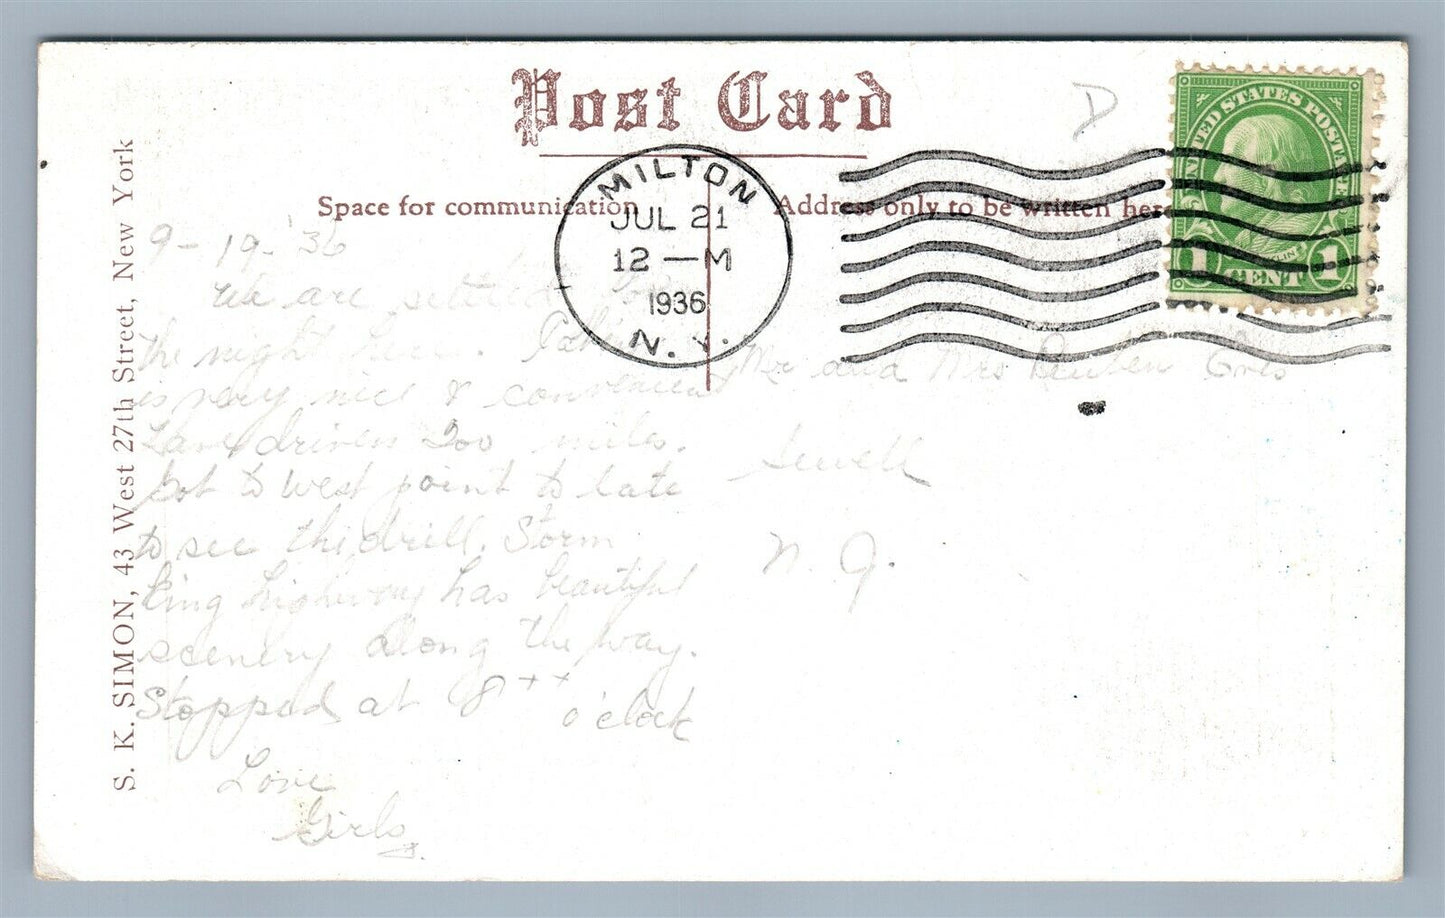 Post Card
Space for communication
Address only to be written here
S. K. SIMON, 43 West 27th Street, New York
MILTON
JUL 21
12 — M
1936
N. Y.
UNITED STATES POSTAGE
1 CENT 1
D
9-19-'36
We are settled for
the night here. Cabin
is very nice & convenient
Have driven 200 miles.
Got to West point to late
to see the drill. Storm
King highway has beautiful
scenery along the way.
Stopped at 8 o'clock
Love
Girls
Mr and Mrs Reuben
Sewell
N. J.